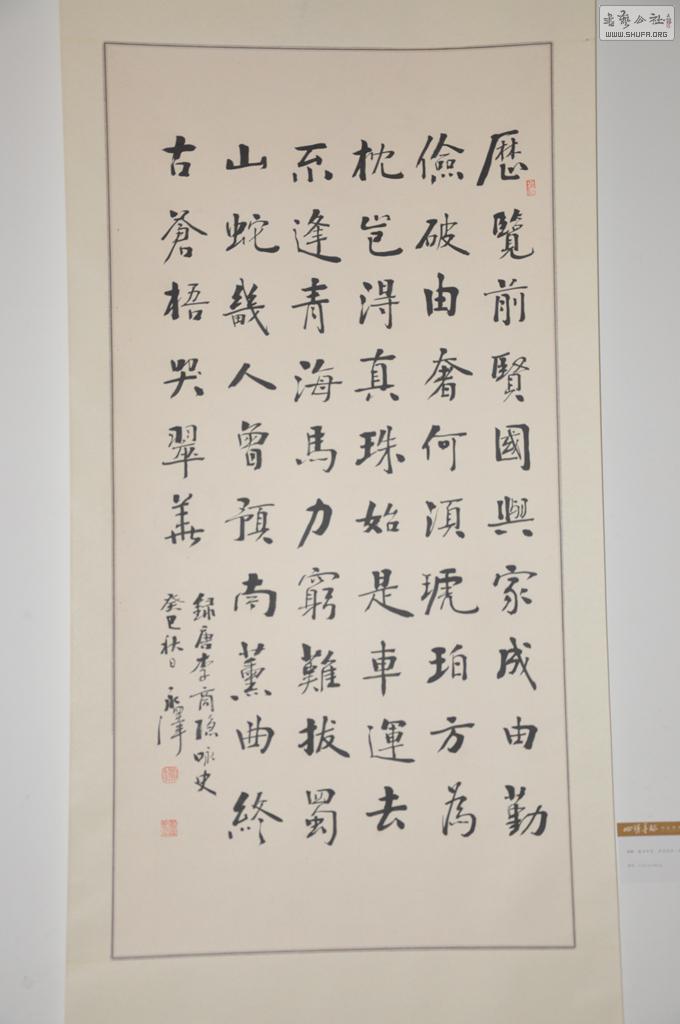 歷覽前賢國與家成由勤
儉破由奢何須琥珀方為
枕豈得真珠始是車運去
不逢青海馬力窮難拔蜀
山蛇幾人曾預南薰曲終
古蒼梧哭翠華
錄唐李商隱咏史
癸巳秋日 永澤
書藝公社
WWW.SHUFA.ORG